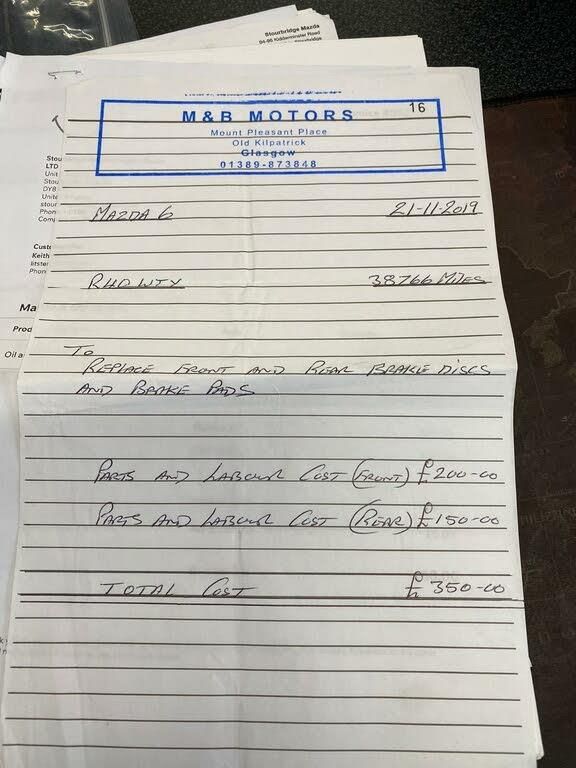 Stourbridge Mazda
94-96 Kidderminster Road
16
M&B MOTORS
Mount Pleasant Place
Old Kilpatrick
Glasgow
01389-873848
Stou
LTD
Unit
Stou
DY8
Unite
stour
Phon
Comp
MAZDA 6
21-11-2019
Custo
Keith
Phon
38766 MILES
Ma
Prod
Oil a
To
REPLACE FRONT AND REAR BRAKE DISCS
AND BRAKE PADS
PARTS AND LABOUR COST (FRONT) £200-00
PARTS AND LABOUR COST (REAR) £150-00
TOTAL COST £350-00